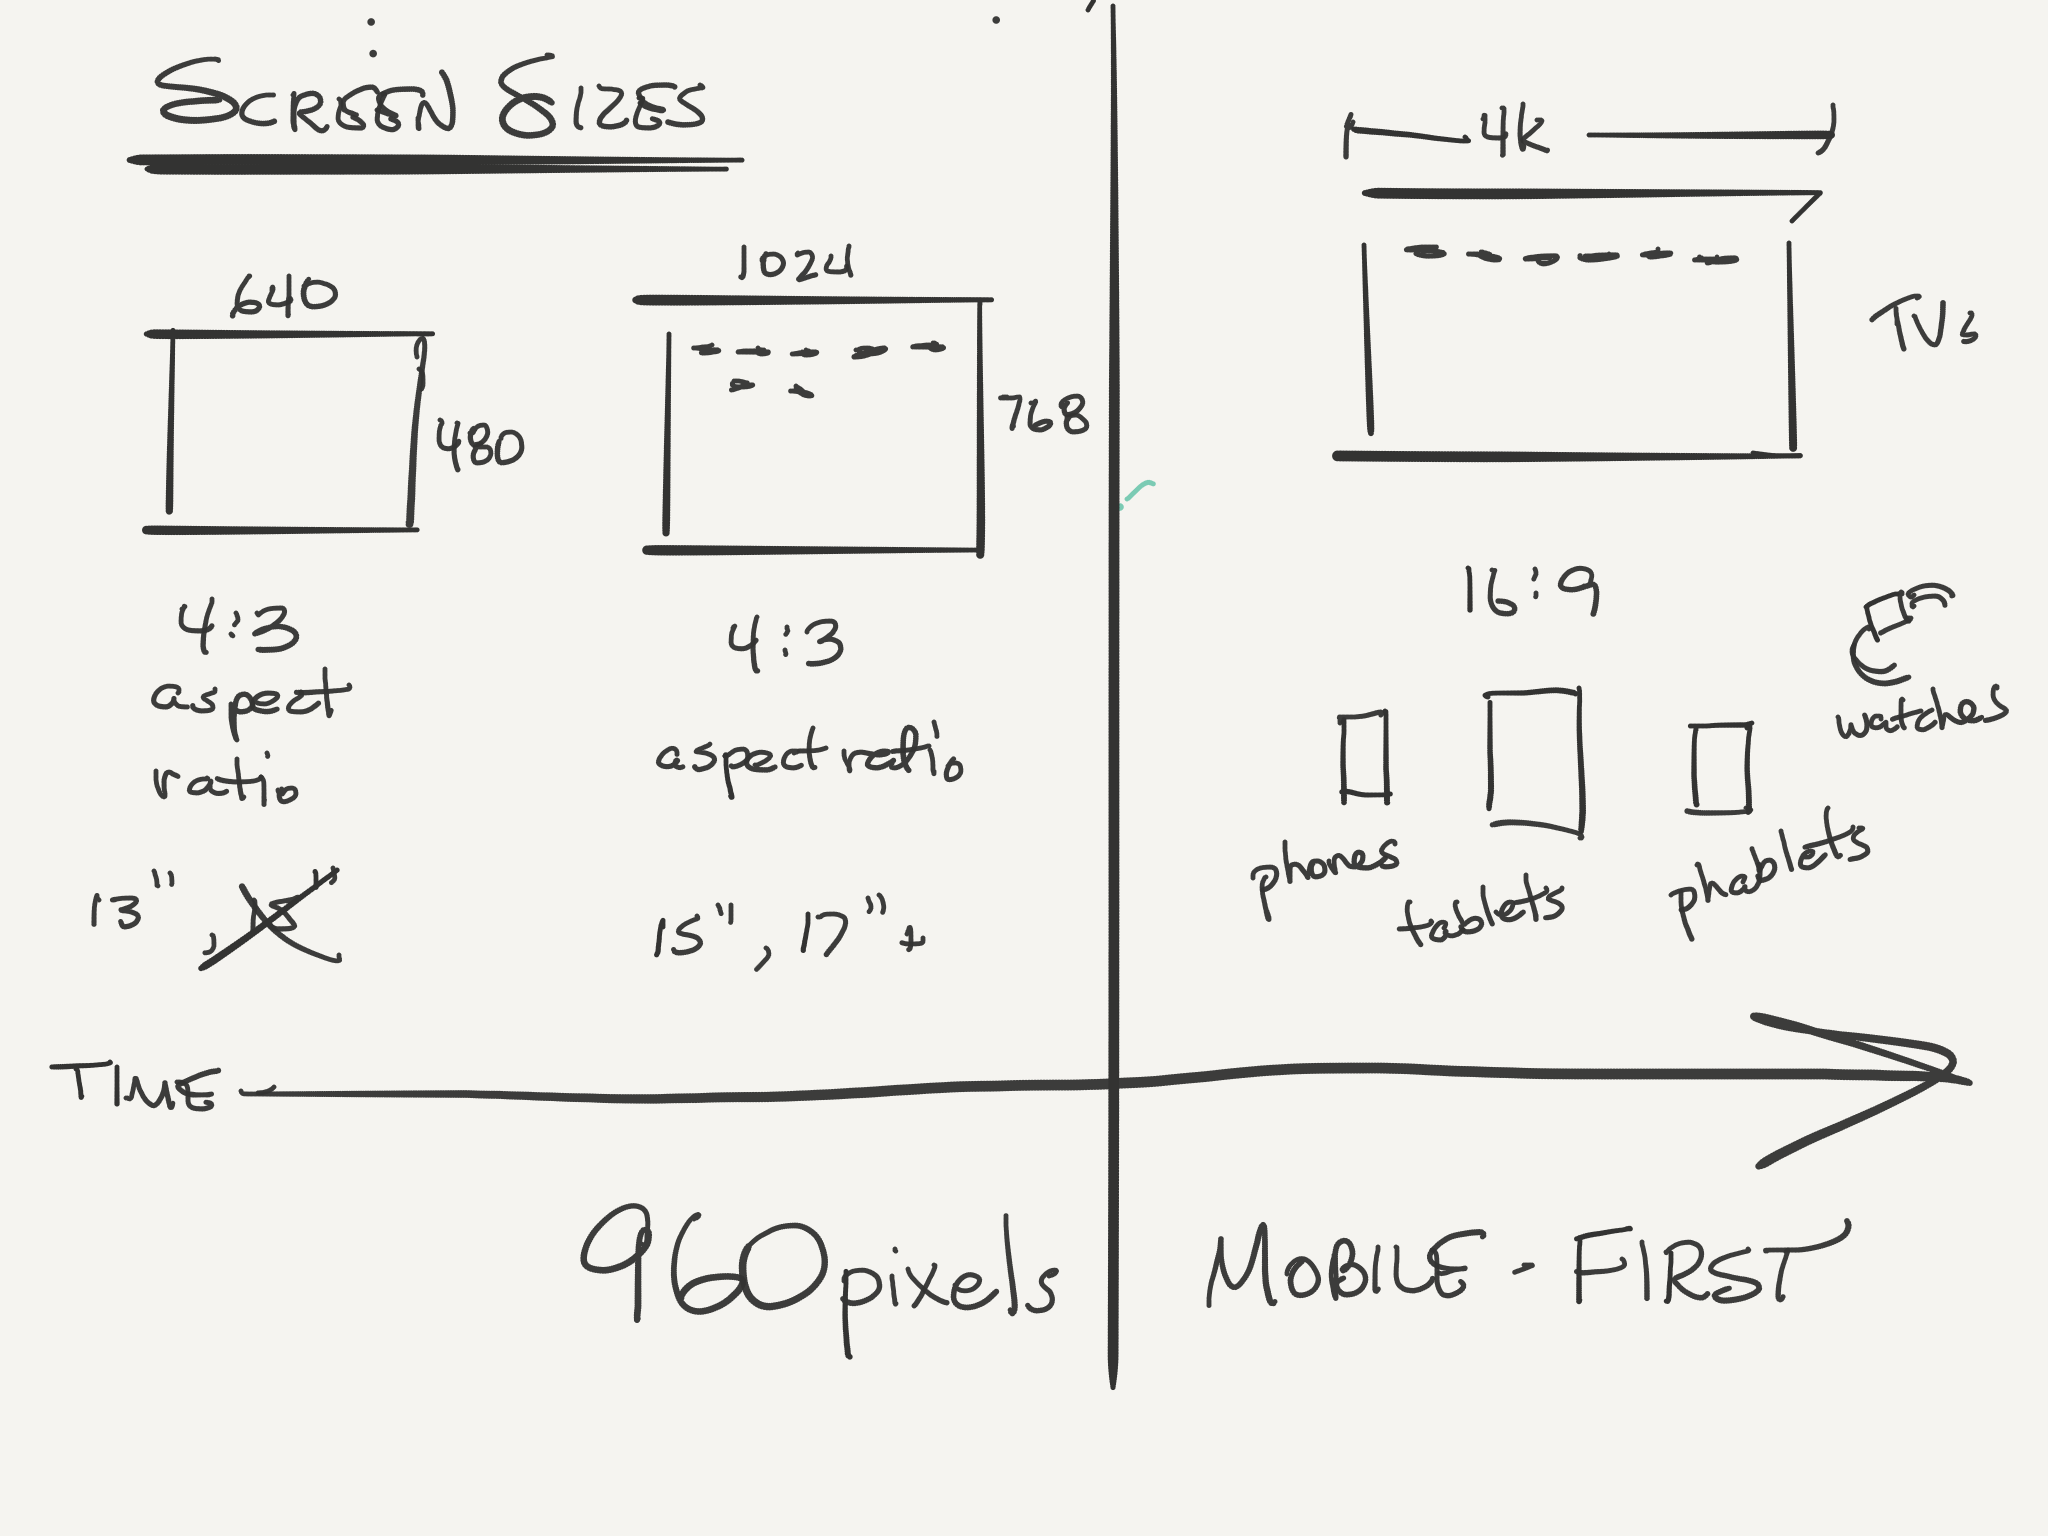 SCREEN SIZES
640
480
4:3
aspect
ratio
13"
1024
768
4:3
aspect ratio
15", 17"+
4k
TVs
16:9
watches
phones
tablets
phablets
TIME
960 pixels
MOBILE-FIRST